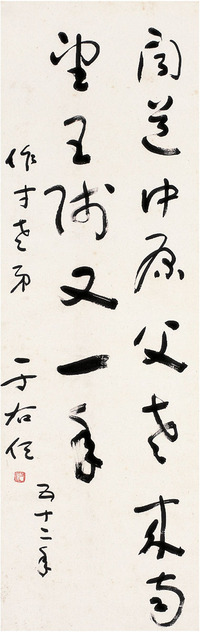 聞道中原父老來南
望王師又一年
作才老弟
五十二年
于右任